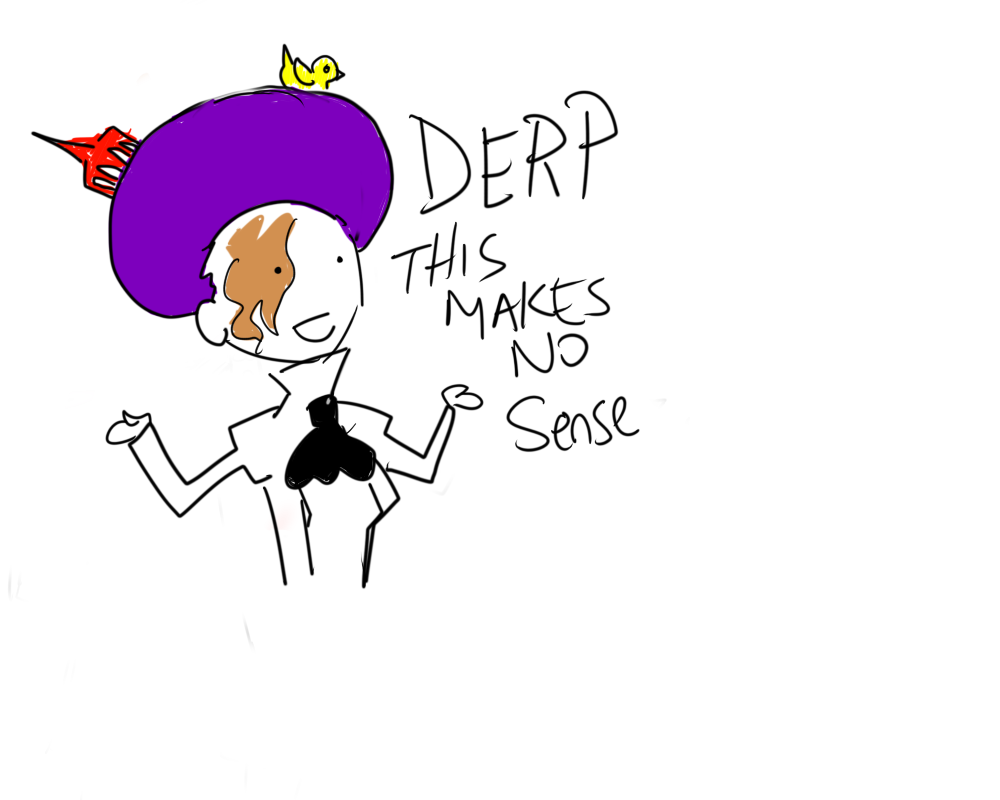 DERP
THIS
MAKES
NO
Sense